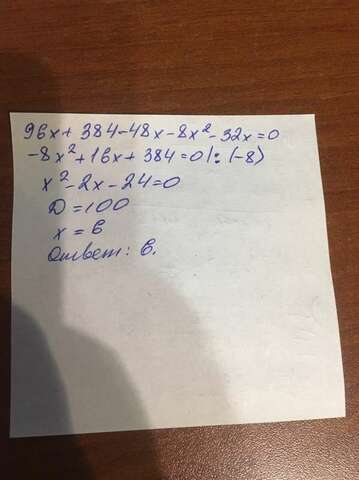 96x + 384 - 48x - 8x² - 32x = 0
-8x² + 16x + 384 = 0 |: (-8)
x² - 2x - 24 = 0
D = 100
x = 6
Ответ: 6.